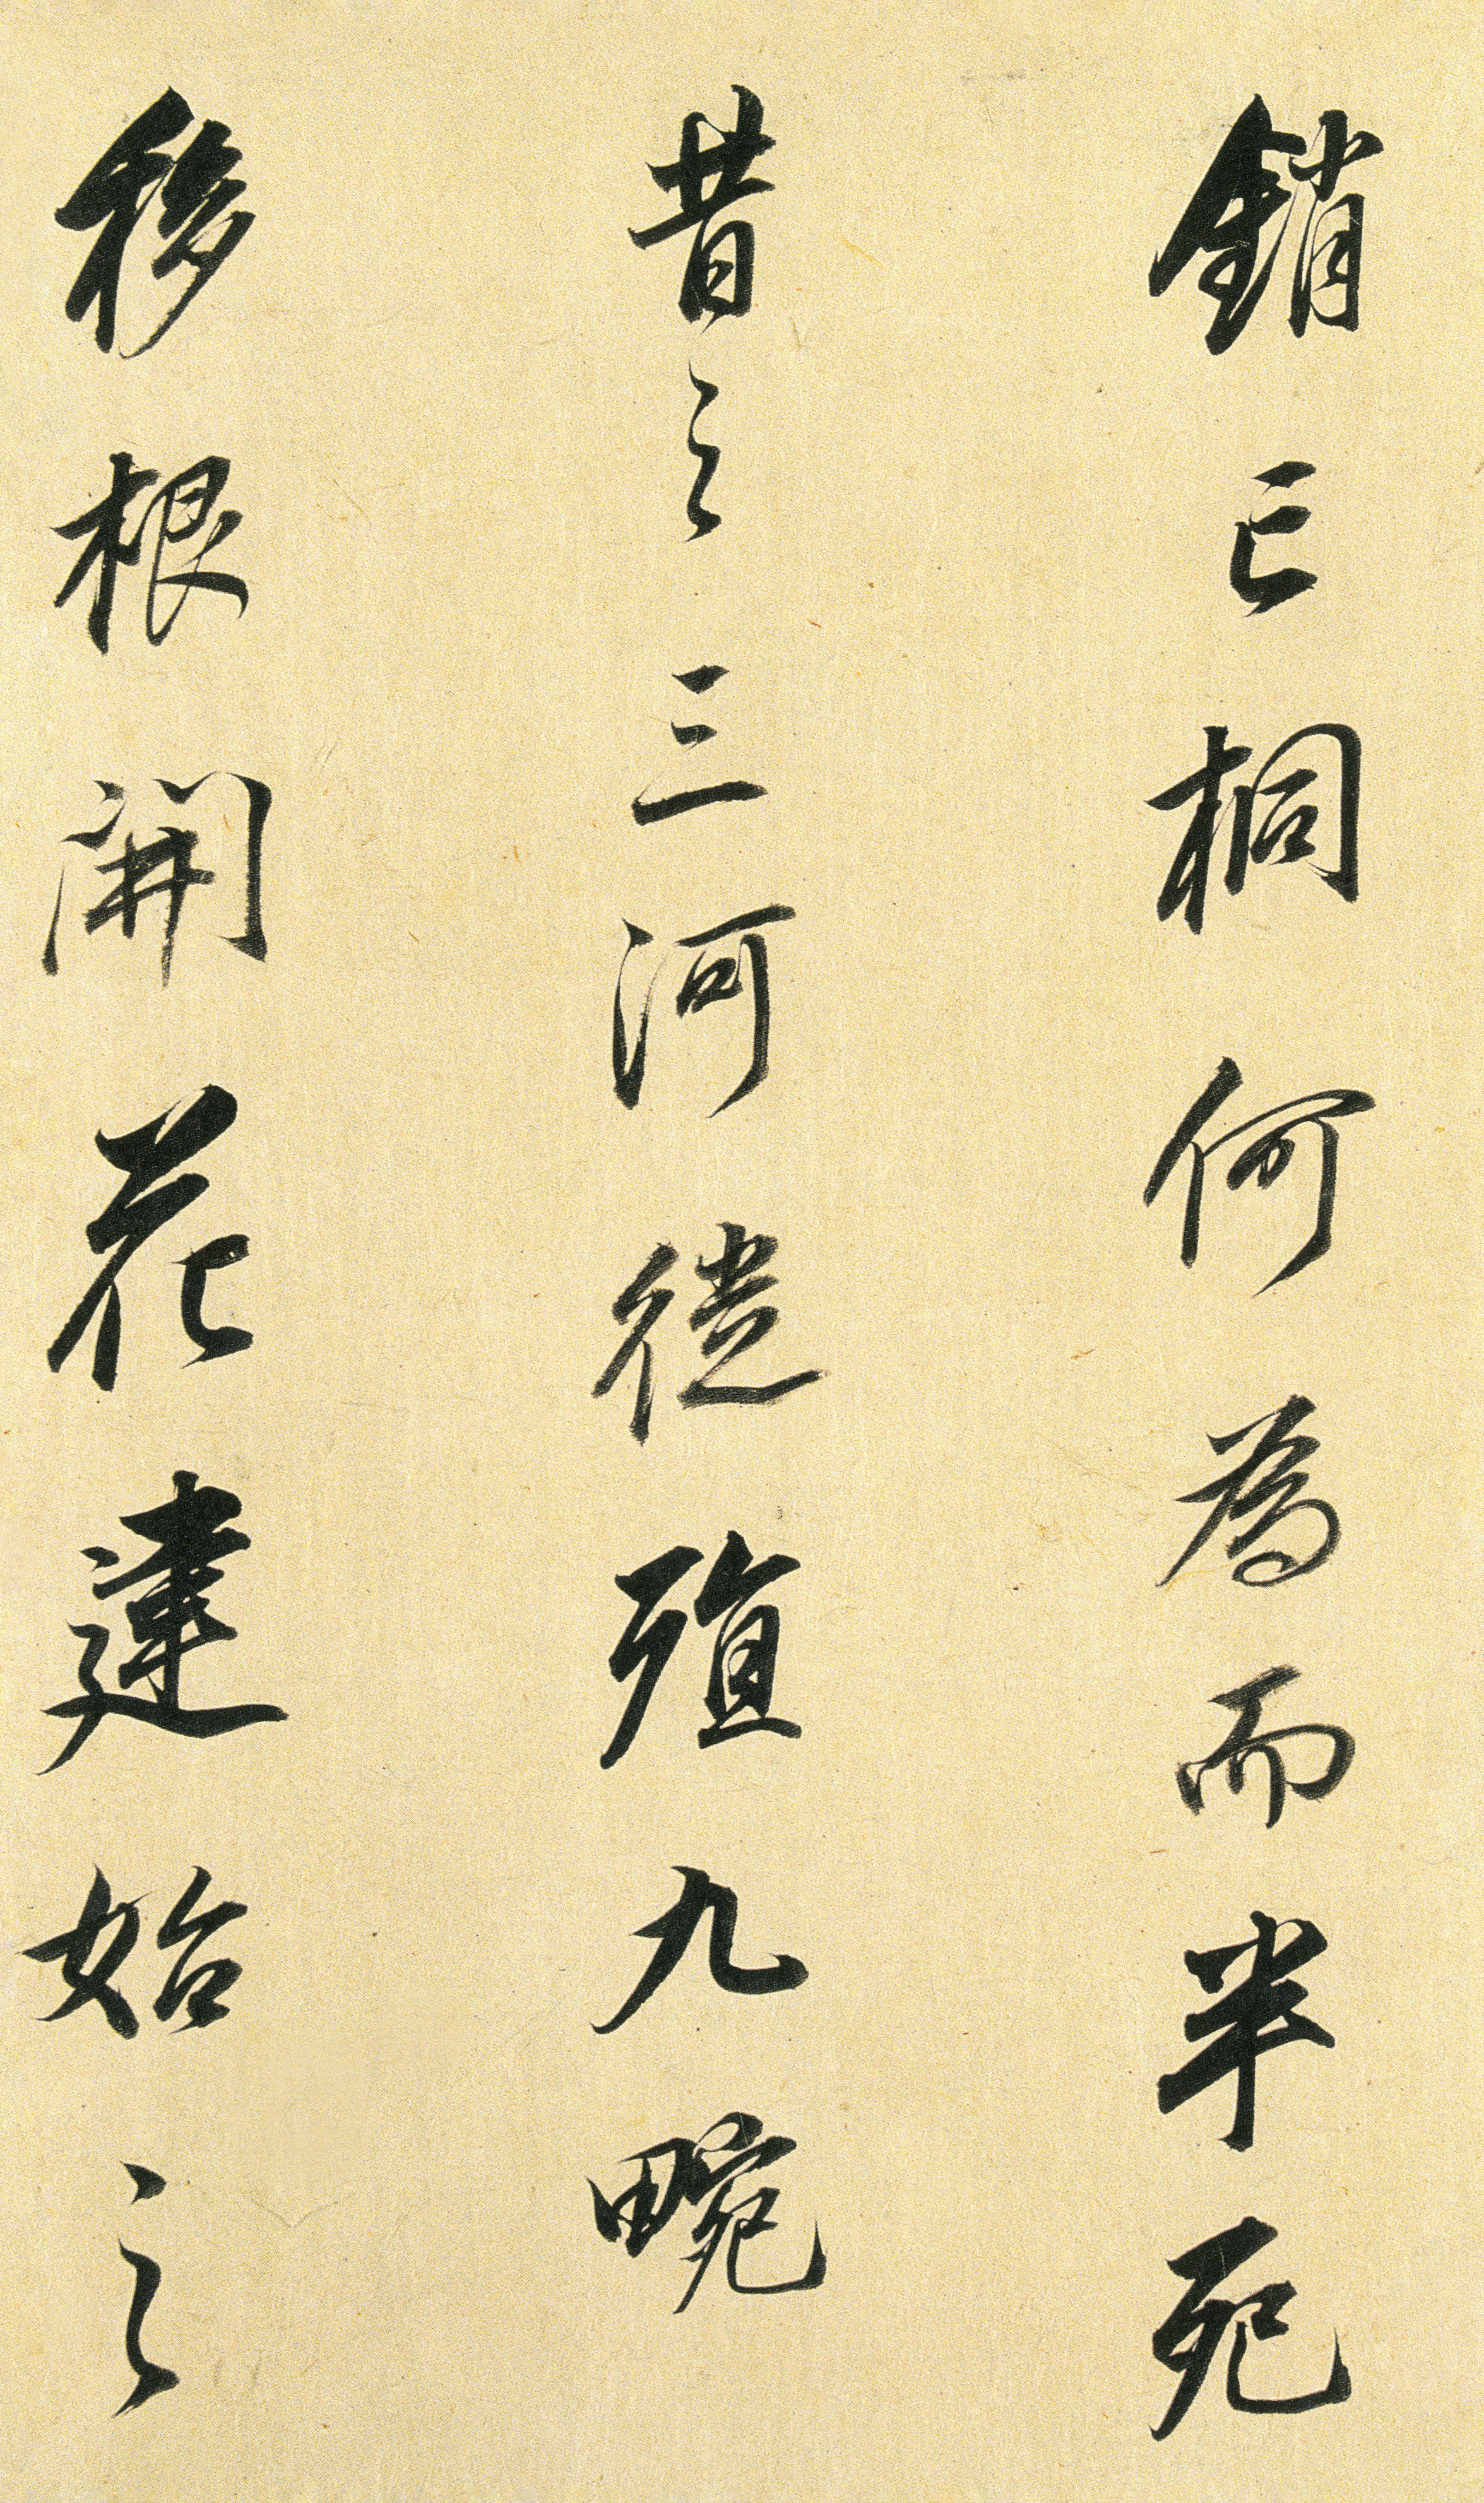 銷亡桐何為而半死
昔之三河徙殖九畹
移根開花建始之